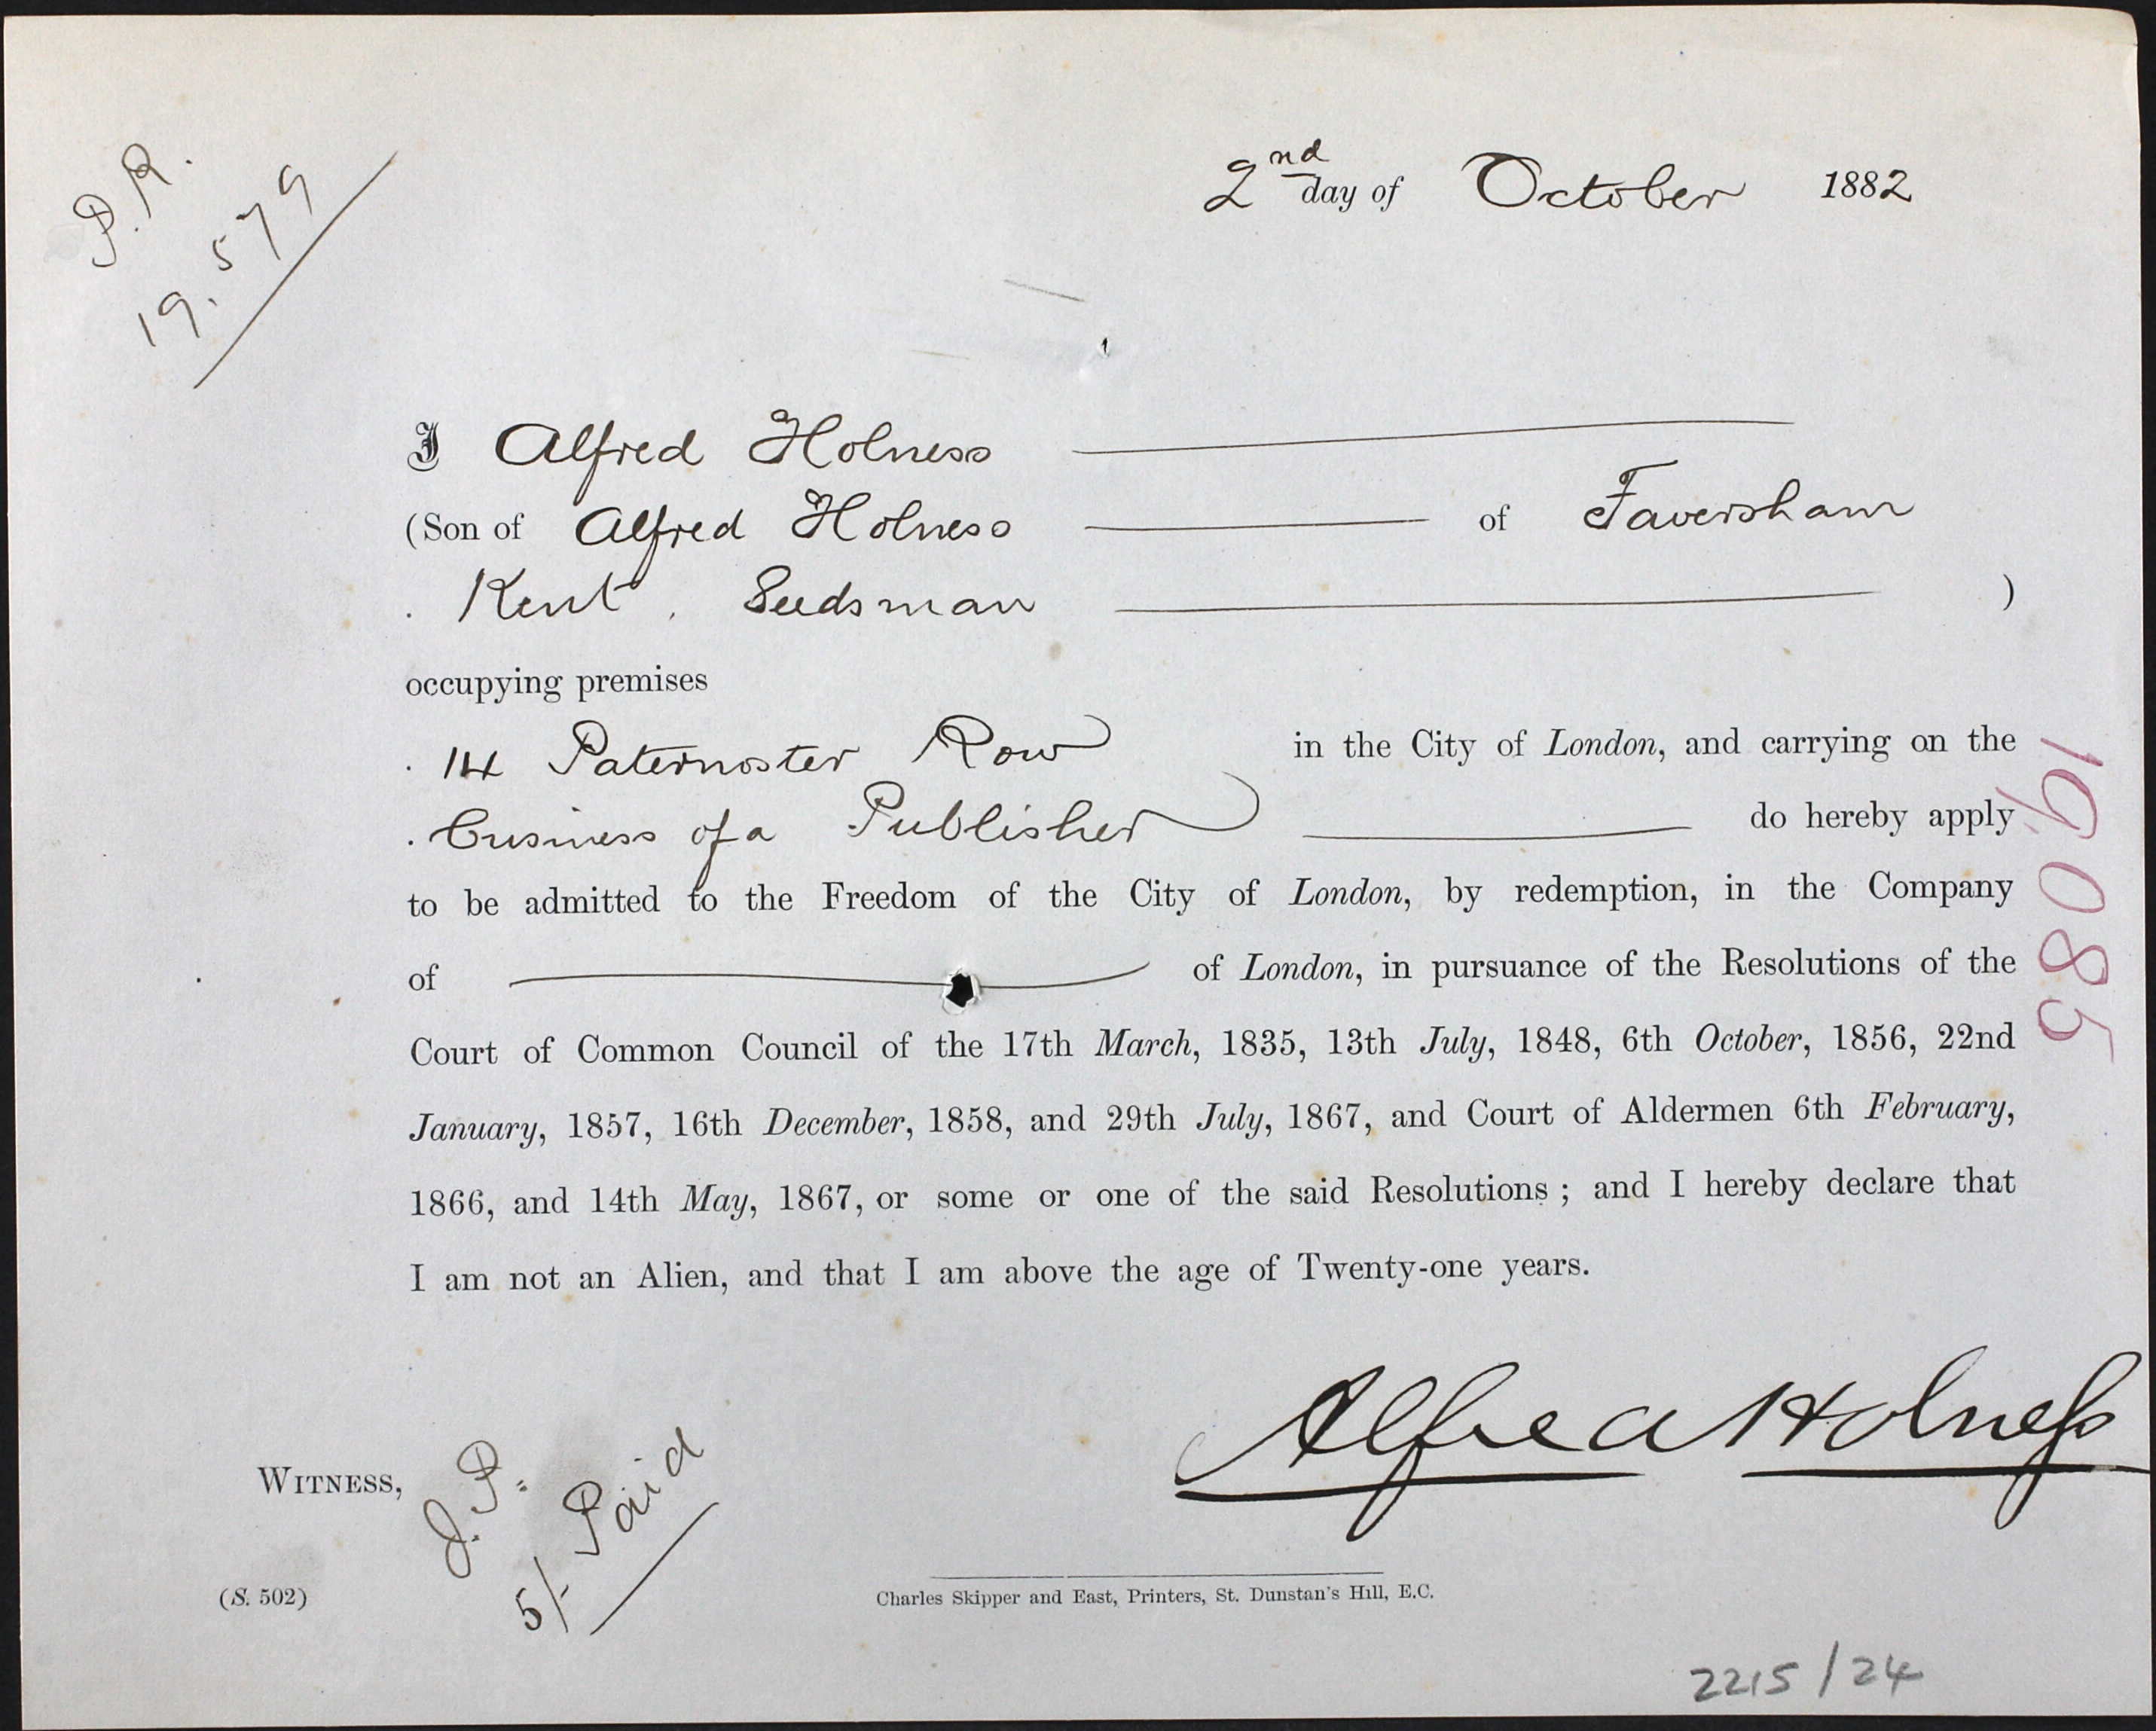 P.R.
19.579
2nd day of October 1882
I Alfred Holness
(Son of Alfred Holness of Faversham
Kent, Seedsman )
occupying premises
14 Paternoster Row in the City of London, and carrying on the
business of a Publisher do hereby apply
to be admitted to the Freedom of the City of London, by redemption, in the Company
of of London, in pursuance of the Resolutions of the
Court of Common Council of the 17th March, 1835, 13th July, 1848, 6th October, 1856, 22nd
January, 1857, 16th December, 1858, and 29th July, 1867, and Court of Aldermen 6th February,
1866, and 14th May, 1867, or some or one of the said Resolutions; and I hereby declare that
I am not an Alien, and that I am above the age of Twenty-one years.
19085
Alfred Holness
WITNESS,
J. P.
5/- Paid
(S. 502)
Charles Skipper and East, Printers, St. Dunstan's Hill, E.C.
2215/24